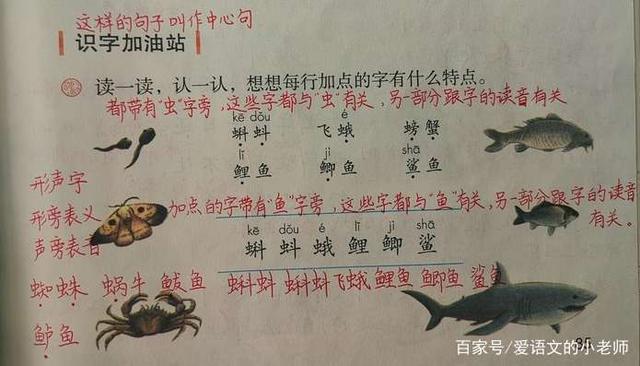 这样的句子叫作中心句
识字加油站
读一读，认一认，想想每行加点的字有什么特点。
都带有"虫"字旁，这些字都与"虫"有关，另一部分跟字的读音有关
kē dǒu é
蝌蚪 飞蛾 螃蟹
lǐ jì shā
鲤鱼 鲫鱼 鲨鱼
形声字
形旁表义
声旁表音
加点的字带有"鱼"字旁，这些字都与"鱼"有关，另一部分跟字的读音
有关。
kē dǒu é lǐ jì shā
蝌 蚪 蛾 鲤 鲫 鲨
蜘蛛 蜗牛 鲅鱼 蝌蚪 蝌蚪飞蛾鲤鱼 鲫鱼 鲨鱼
鲈鱼
85
百家号/爱语文的小老师